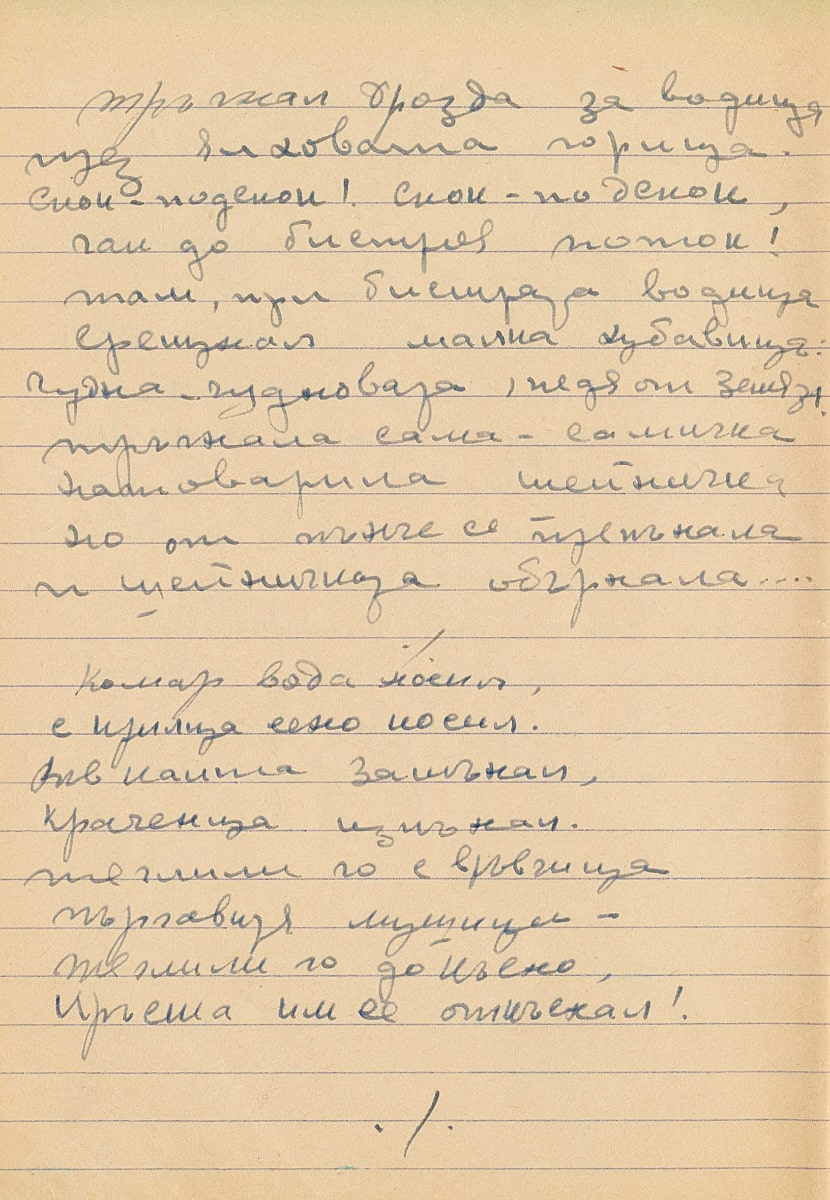 тръгнал Дрозда за водица
през Елховата горица.
Скок-подскок! Скок-подскок,
чак до бистрия поток!
там, при бистрата водица
срещнал малка хубавица:
Чудна-чудновата, педя от земята!
тръгнала сама-самичка
натоварила шейничка
но от пънче се препънала
и шейничката обърнала....
./.
Комар вода носил,
с крилца сено косил.
във калта затънал,
краченца изпънал.
теглили го с връвчица
пъргавите мушици -
теглили го до късно,
Кръста им се откъснал!
./.